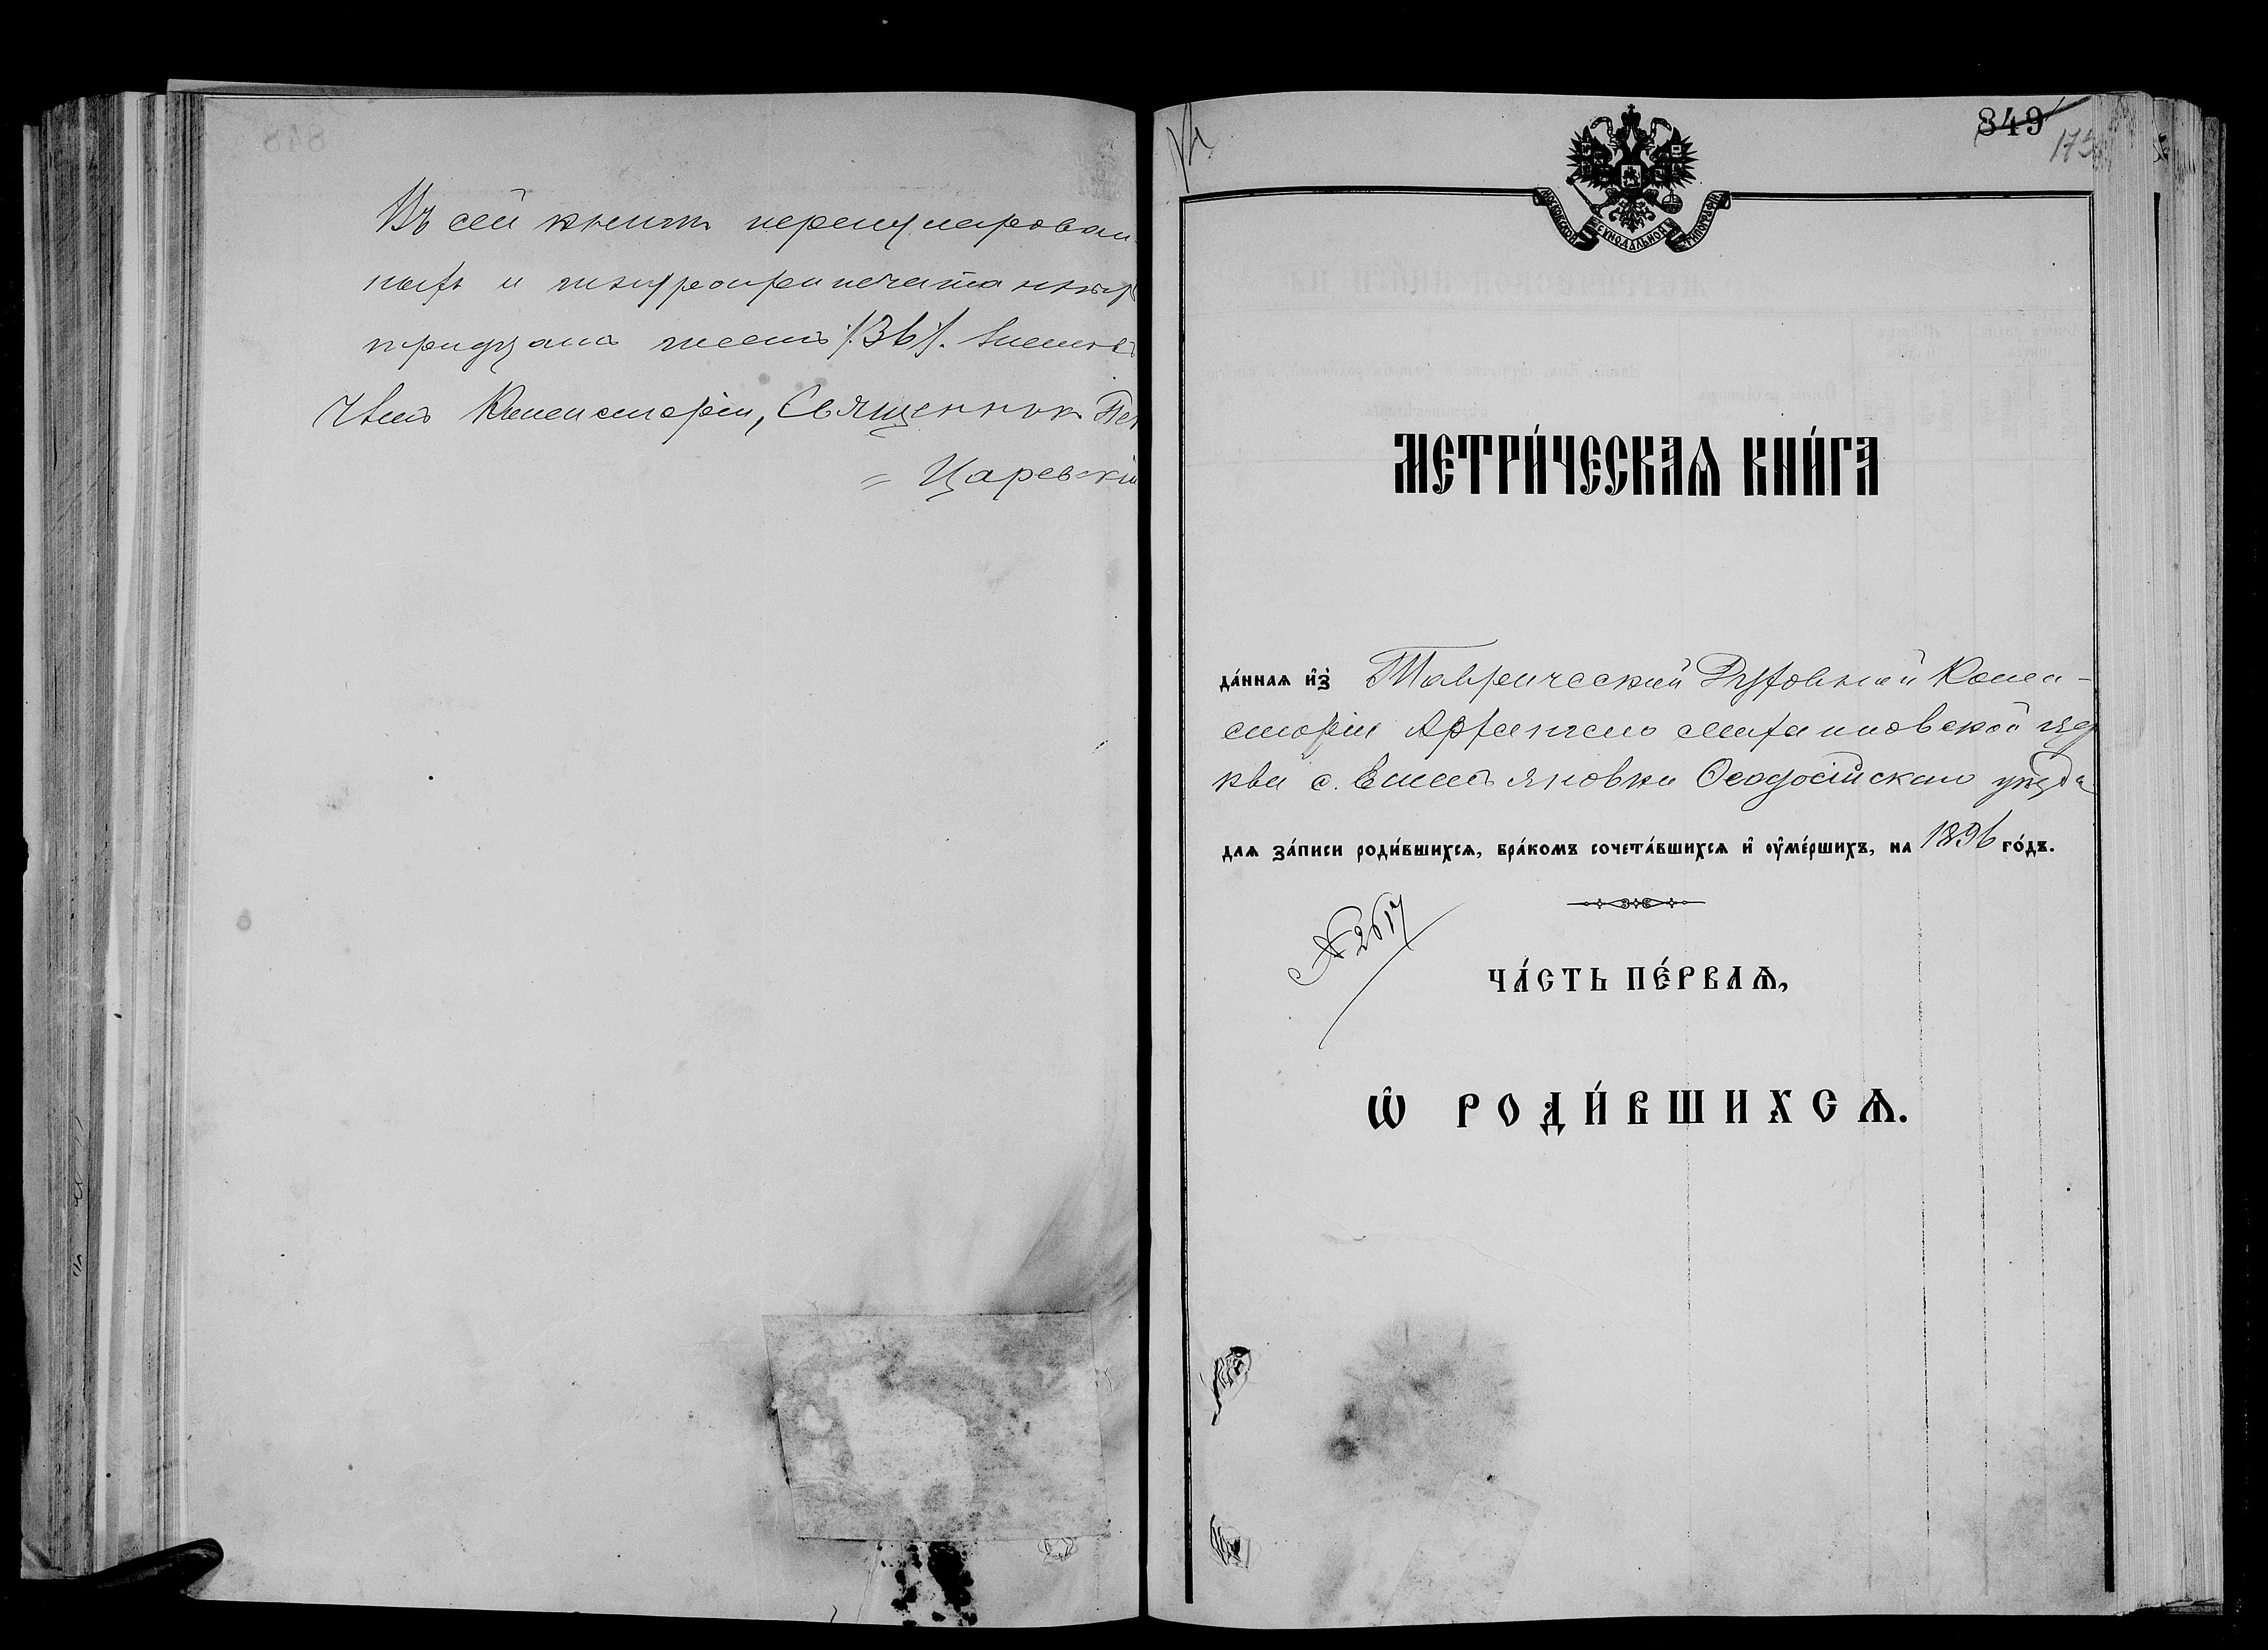 Въ сей книгѣ перенумерован-
ныхъ и шнуроприпечатанныхъ
тридцать шесть /:36:/. листовъ
Члѣнъ Консисторіи, Священникъ
Царевскій
849
МОСКОВСКОЙ СѴНОДАЛЬНОЙ ТИПОГРАФІИ
МЕТРИ́ЧЕСКАѦ КНИ́ГА
да́ннаѧ и҆з̾ Таврической Духовной Конси-
сторіи Архангело михаиловской цер
кви с. Емельяновки Ѳеодосійскаго уѣзда
длѧ за́писи роди́вшихсѧ, бра́комъ сочета́вшихсѧ и҆ оу҆ме́ршихъ, на 1896 го́дъ.
№ 2617
ЧА́СТЬ ПЕ́РВАѦ,
Ѡ҆ РОДИ́ВШИХСѦ.